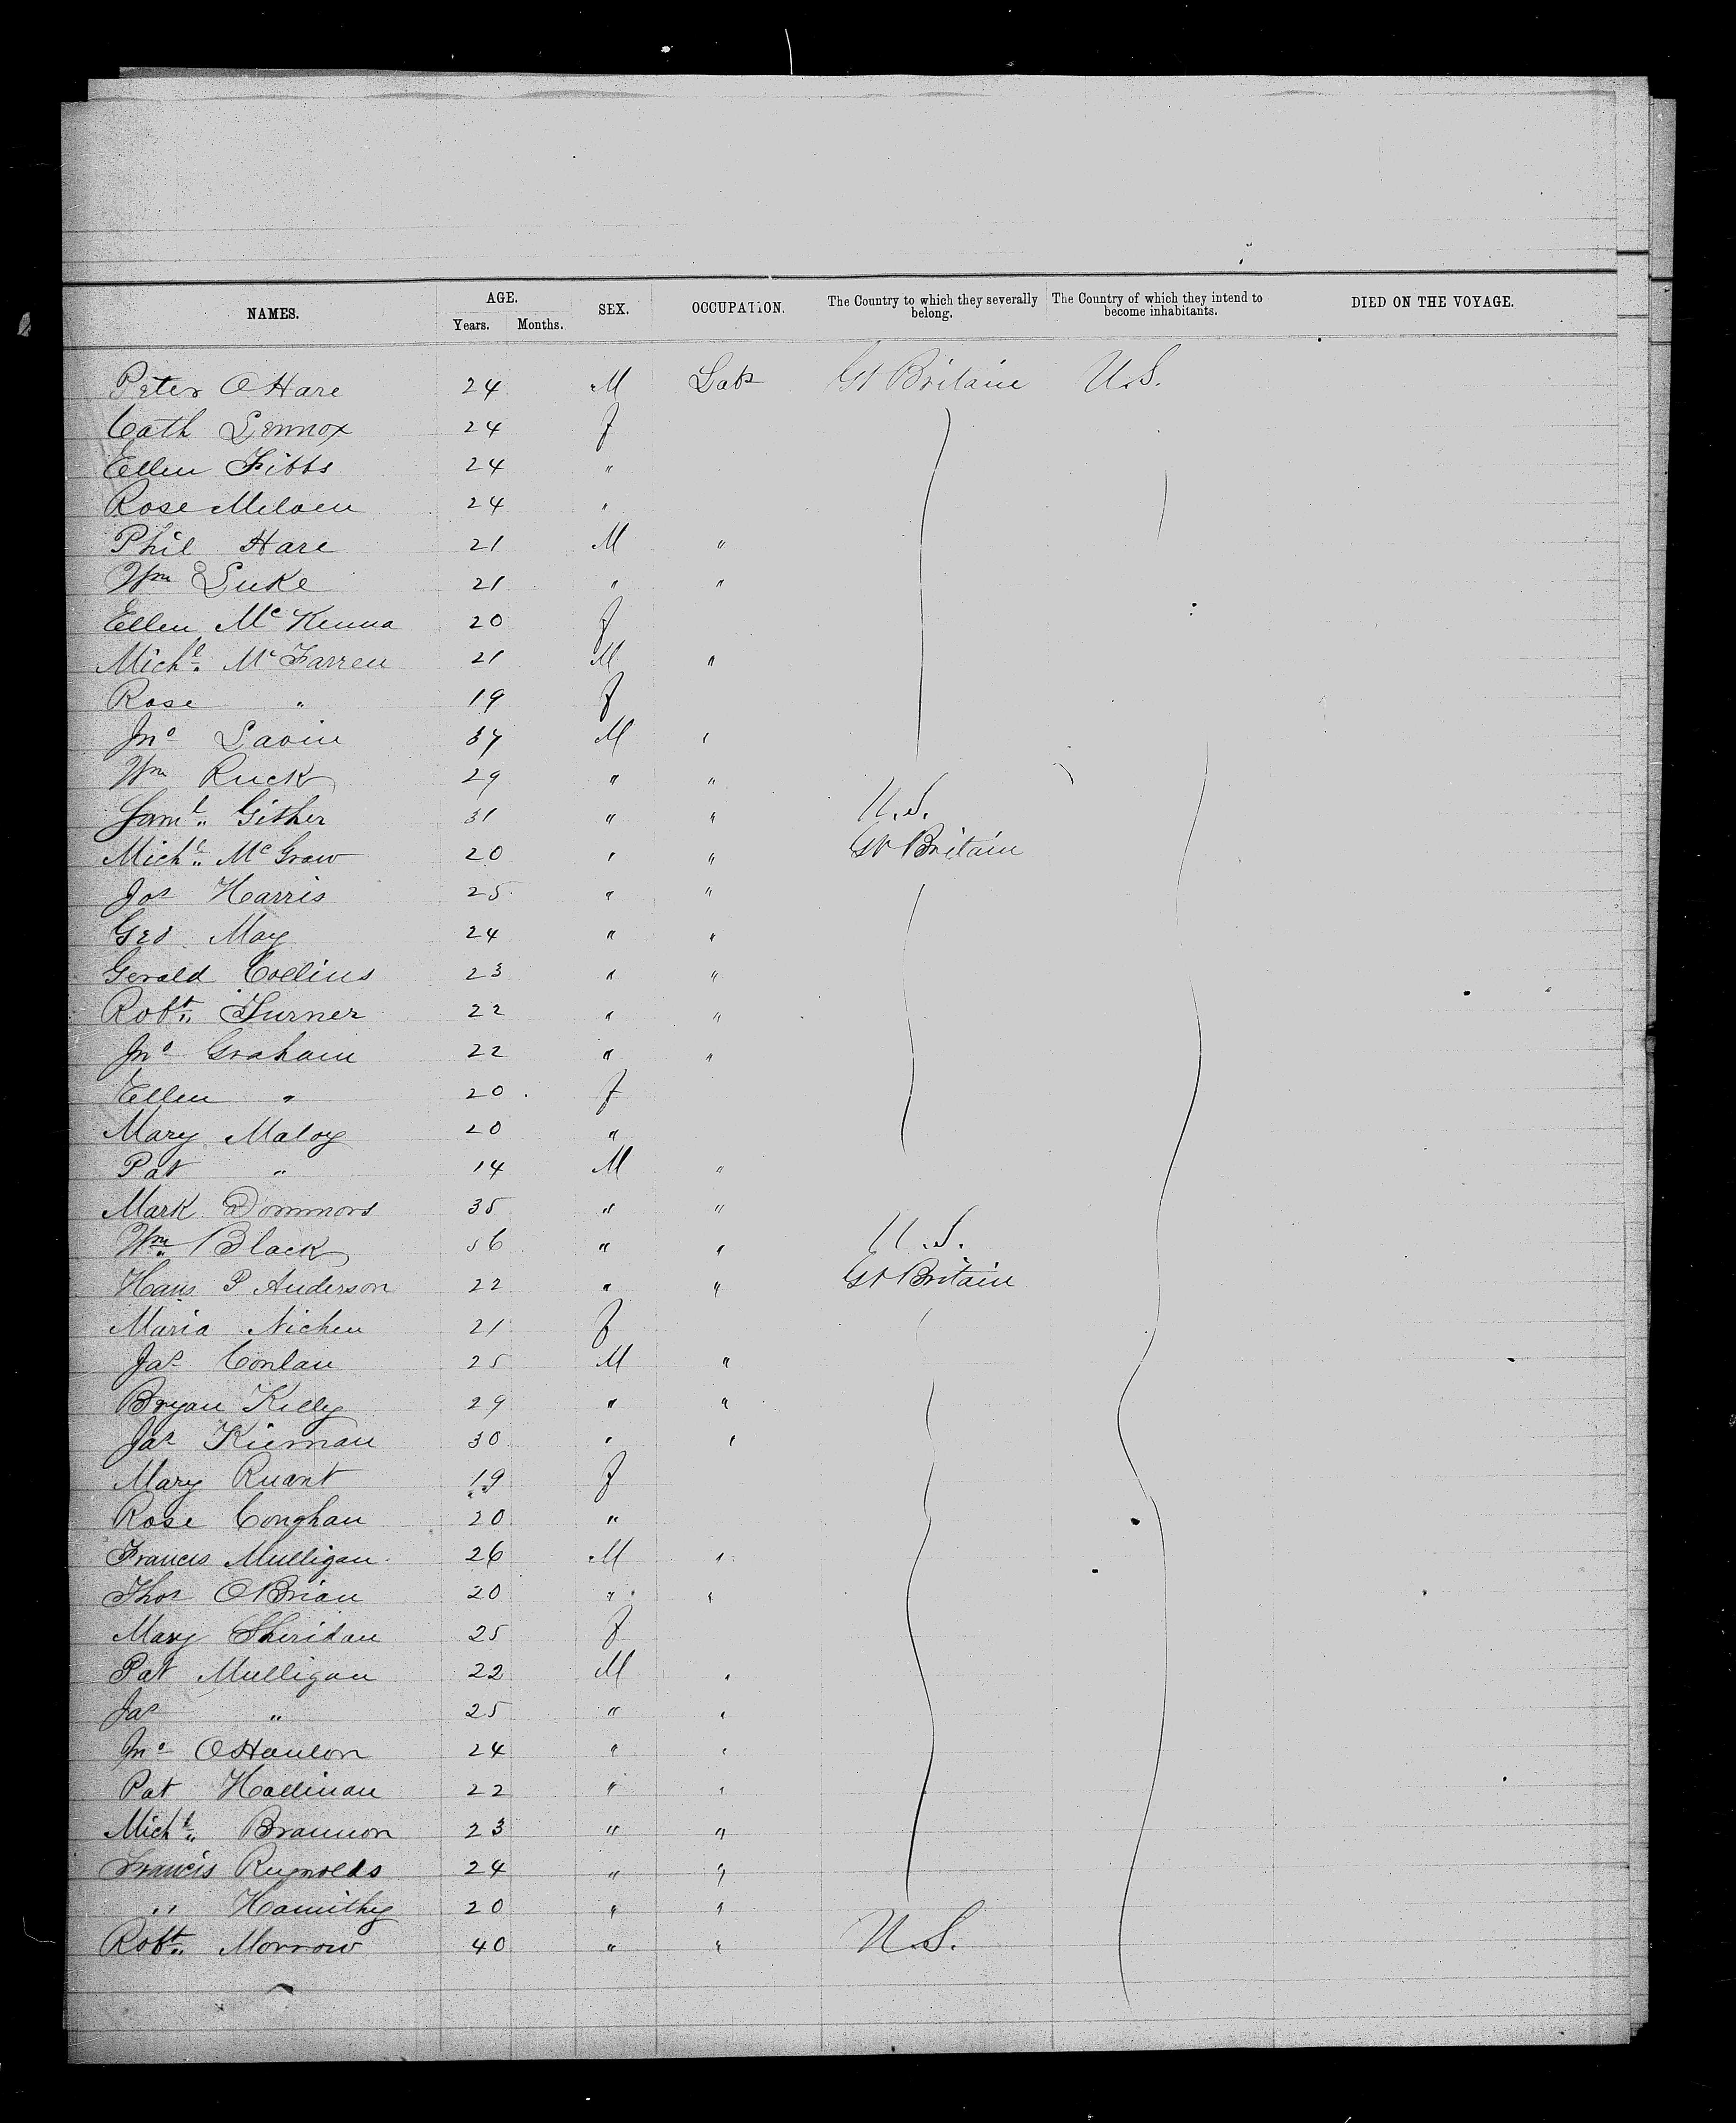 NAMES. AGE. Years. Months. SEX. OCCUPATION. The Country to which they severally belong. The Country of which they intend to become inhabitants. DIED ON THE VOYAGE.
Peter O Hare 24 M Labr Gt Britain U.S.
Cath Lennox 24 f
Ellen Fibbs 24 "
Rose 24 "
Phil Hare 21 M "
Wm Luke 21 " "
Ellen McKenna 20 f
Michl. McFarren 21 M "
Rose " 19 f
Jno Lavin 37 M "
Wm Ruck 29 " "
Saml. Gither 31 " " U.S.
Michl. McGraw 20 " " Gt Britain
Jos Harris 25 " "
Geo May 24 " "
Gerald Collins 23 " "
Robt. Turner 22 " "
Jno Graham 22 " "
Ellen " 20 f
Mary Maloy 20 "
Pat " 14 M "
Mark Dommors 35 " "
Wm. Black 56 " " U.S.
Hans P Anderson 22 " " Gt Britain
Maria 21 f
Jas Conlan 25 M "
Bryan Kelly 29 " "
Jas Kiernan 30 " "
Mary Ruant 19 f
Rose Conghan 20 "
Francis Mulligan 26 M "
Thos O'Brian 20 " "
Mary Sheridan 25 f
Pat Mulligan 22 M "
Jas " 25 " "
Jno O'Hanlon 24 " "
Pat Hallinan 22 " "
Michl. Brannon 23 " "
Francis Reynolds 24 " "
" 20 " "
Robt. Morrow 40 " " U.S.